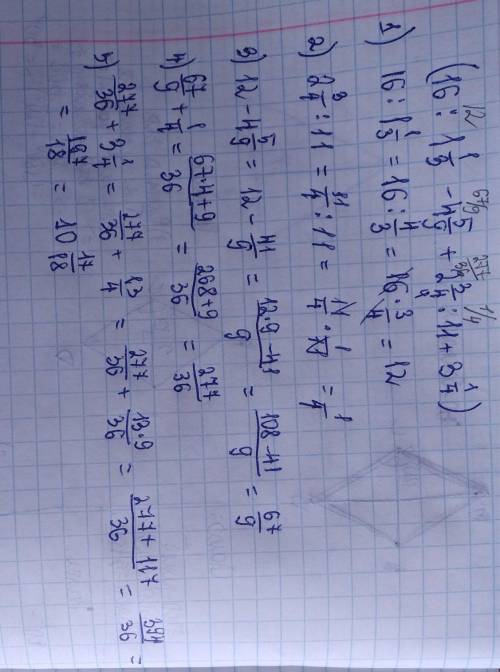 12 67/9 277/36 1/4
(16 : 1 1/3 - 4 5/9 + 2 3/4 : 11 + 3 1/4)
1) 16 : 1 1/3 = 16 : 4/3 = 16 · 3/4 = 12
2) 2 3/4 : 11 = 11/4 : 11 = 11/4 · 1/11 = 1/4
3) 12 - 4 5/9 = 12 - 41/9 = (12·9-41)/9 = (108-41)/9 = 67/9
4) 67/9 + 1/4 = (67·4+9)/36 = (268+9)/36 = 277/36
5) 277/36 + 3 1/4 = 277/36 + 13/4 = 277/36 + (13·9)/36 = (277+117)/36 = 394/36 =
= 197/18 = 10 17/18